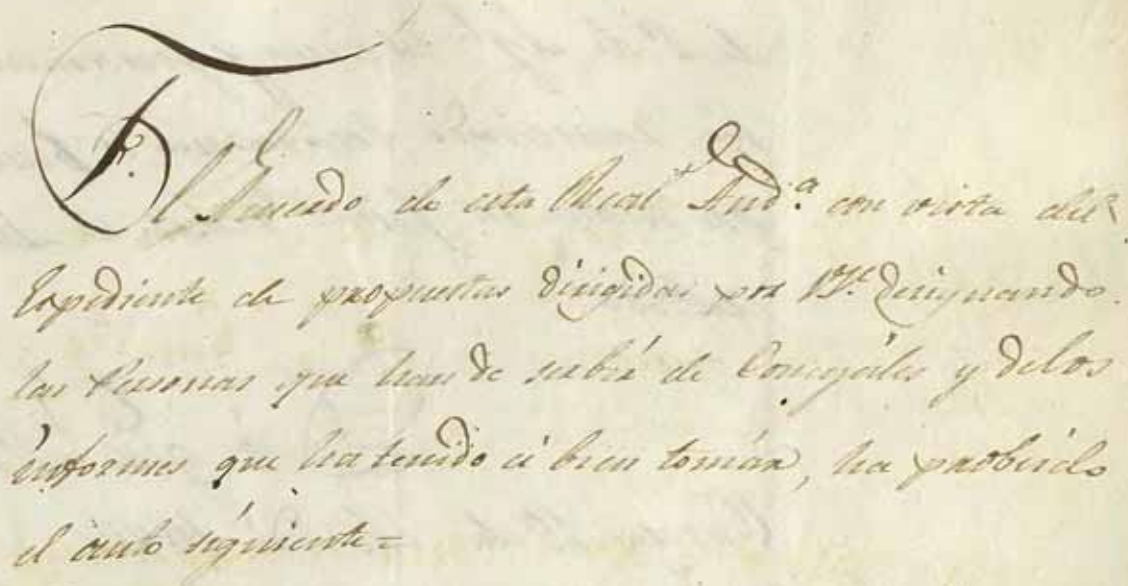 El Acuerdo de esta Real Aud.ª con vista del
Expediente de propuestas dirigidas por V. designando
las Personas que han de serbir de Concejales y delos
informes que ha tenido á bien tomar, ha probeido
el auto siguiente=